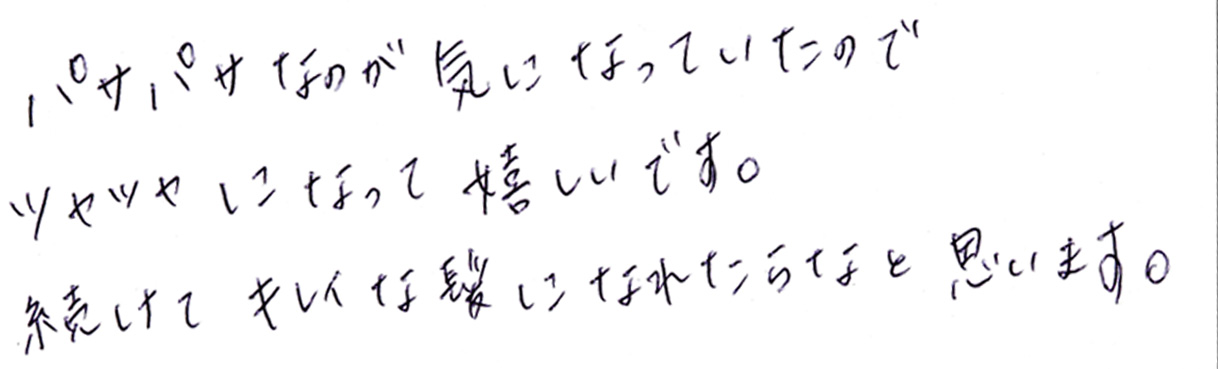 パサパサなのが気になっていたので
ツヤツヤになって嬉しいです。
続けてキレイな髪になれたらなと思います。